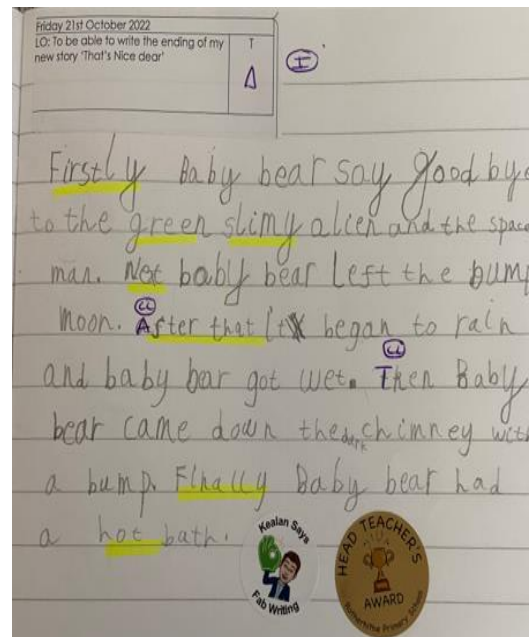 Friday 21st October 2022
LO: To be able to write the ending of my
new story 'That's Nice dear'
T
I
Firstly Baby bear say good bye
to the green slimy alien and the space
man. Net baby bear left the bump
moon. After that it began to rain
and baby bar got wet. Then Baby
bear came down the dark chimney with
a bump. Finally Baby bear had
a hot bath.
Kealan Says
Fab Writing
HEAD TEACHER'S
AWARD
Rotherhithe Primary School